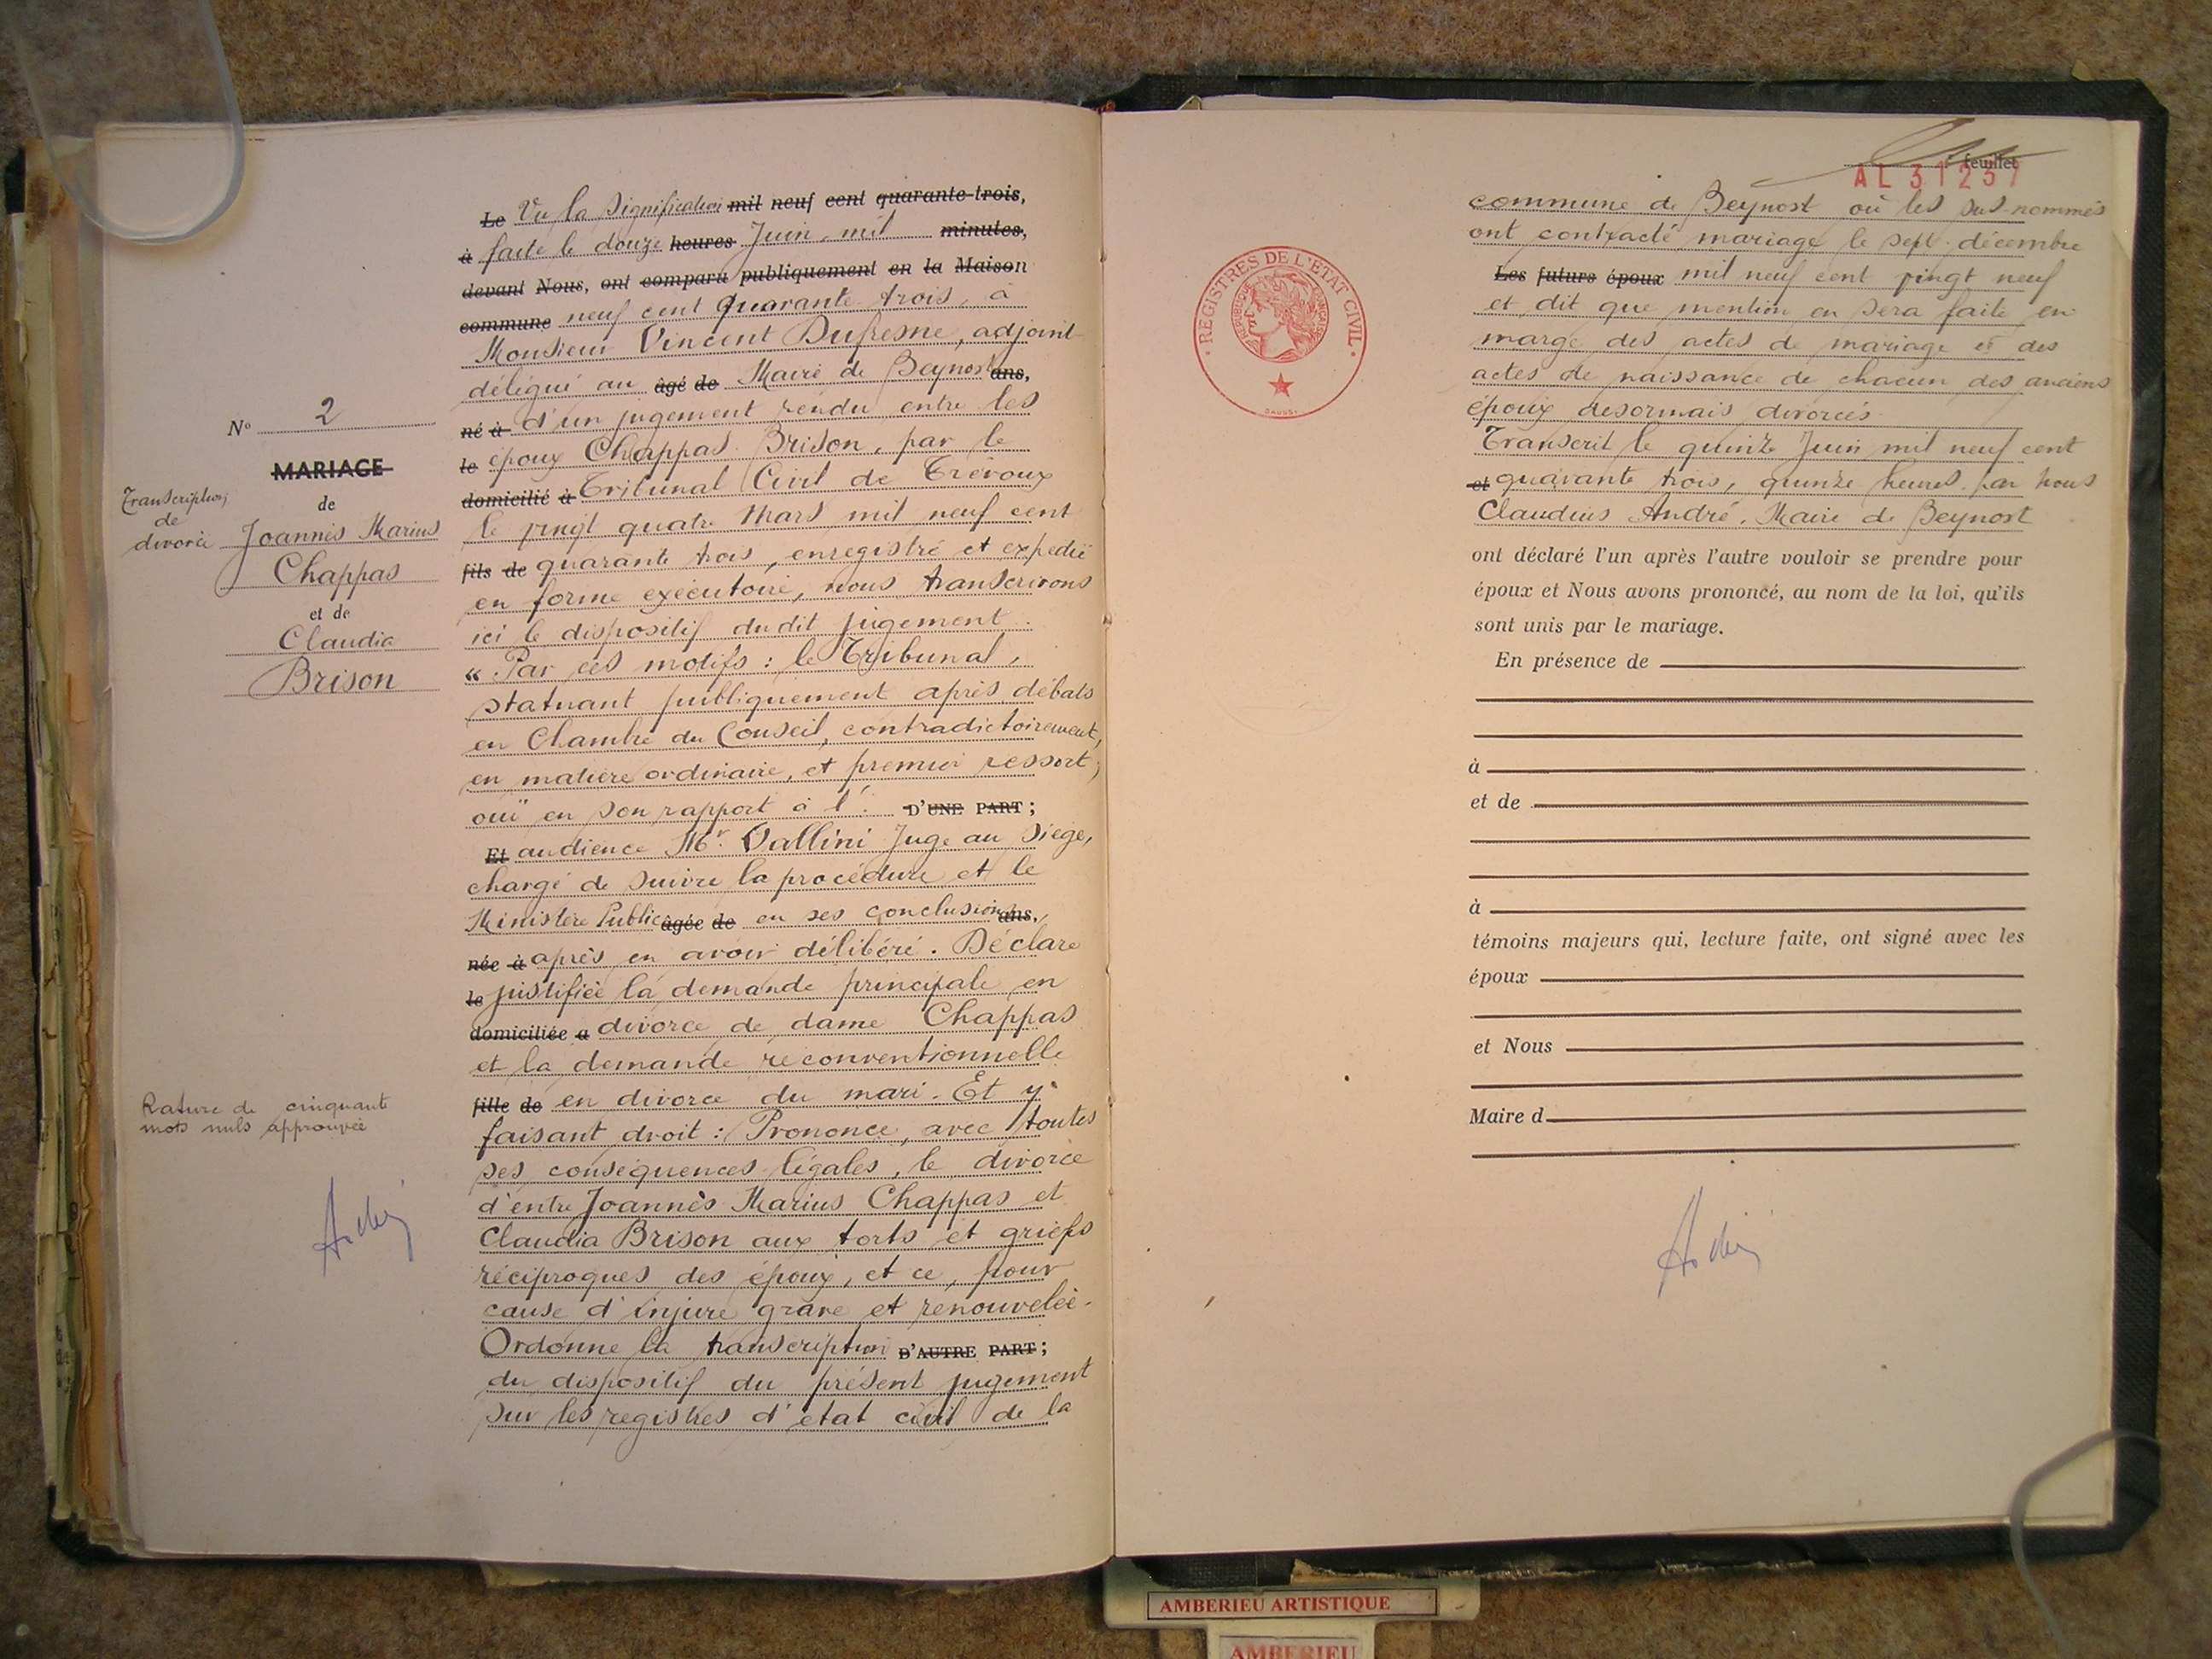 N° 2
MARIAGE
Transcription
de
divorce
de
Joannès Marius
Chappas
et de
Claudia
Brison
Rature de cinquante
mots nuls approuvée
Le Vu la signification mil neuf cent quarante-trois,
à faite le douze heures Juin mil minutes,
devant Nous, ont comparu publiquement en la Maison
commune neuf cent quarante trois, à
Monsieur Vincent Dufresne, adjoint
délégué au âgé de Maire de Beynost ans,
né à d'un jugement rendu entre les
le époux Chappas Brison, par le
domicilié à Tribunal Civil de Trévoux
le vingt quatre Mars mil neuf cent
fils de quarante trois, enregistré et expédié
en forme exécutoire, nous transcrivons
ici le dispositif dudit jugement :
« Par ces motifs : le Tribunal,
statuant publiquement après débats
en Chambre du Conseil, contradictoirement,
en matière ordinaire, et premier ressort,
ouï en son rapport à l' D'UNE PART ;
Et audience Mr. Vallini Juge au siège,
chargé de suivre la procédure et le
Ministère Public âgée de en ses conclusions ans,
née à après en avoir délibéré. Déclare
le justifiée la demande principale en
domiciliée à divorce de dame Chappas
et la demande reconventionnelle
fille de en divorce du mari. Et y
faisant droit : Prononce, avec toutes
ses conséquences légales, le divorce
d'entre Joannès Marius Chappas et
Claudia Brison aux torts et griefs
réciproques des époux, et ce, pour
cause d'injure grave et renouvelée.
Ordonne la transcription D'AUTRE PART ;
du dispositif du présent jugement
sur les registres d'état civil de la
feuillet
AL 31237
REGISTRES DE L'ÉTAT CIVIL
RÉPUBLIQUE FRANÇAISE
commune de Beynost où les sus-nommés
ont contracté mariage le sept décembre
Les futurs époux mil neuf cent vingt neuf
et dit que mention en sera faite en
marge des actes de mariage et des
actes de naissance de chacun des anciens
époux desormais divorcés.
Transcrit le quinze Juin mil neuf cent
et quarante trois, quinze heures par Nous
Claudius André, Maire de Beynost
ont déclaré l'un après l'autre vouloir se prendre pour
époux et Nous avons prononcé, au nom de la loi, qu'ils
sont unis par le mariage.
En présence de
à
et de
à
témoins majeurs qui, lecture faite, ont signé avec les
époux
et Nous
Maire d
AMBERIEU ARTISTIQUE
AMBERIEU